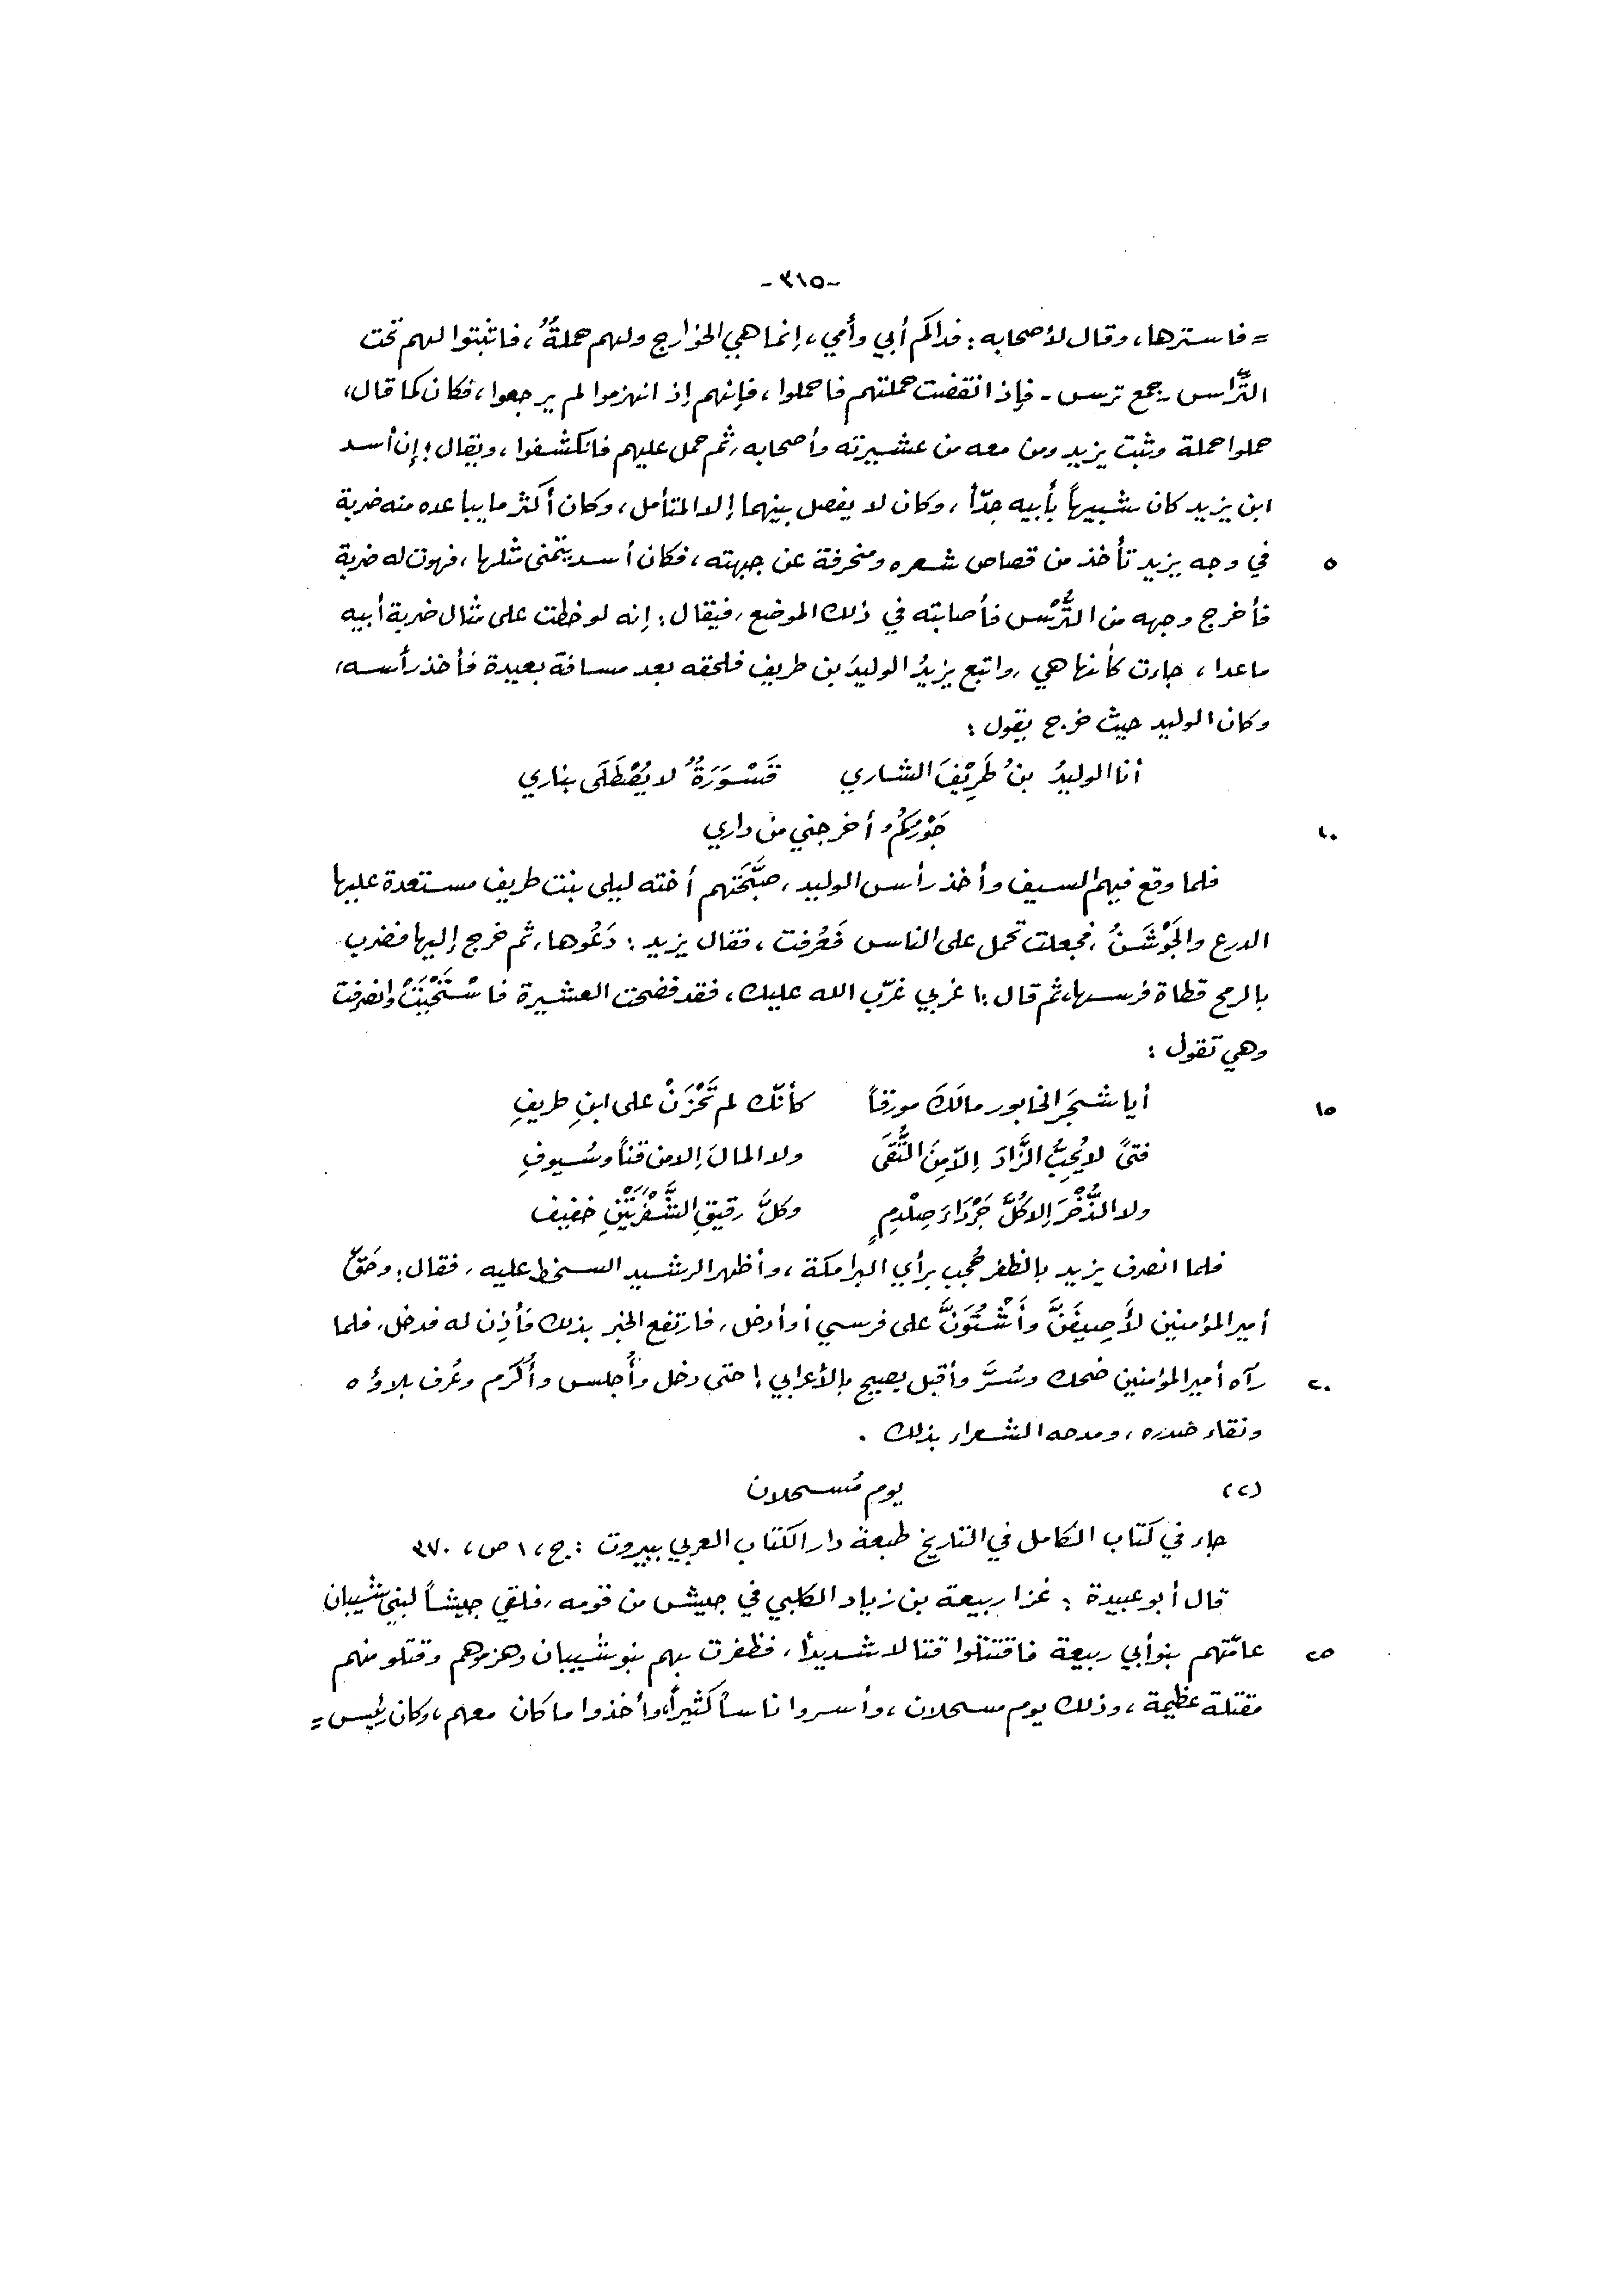 -٣١٥-
= فاسترها، وقال لأصحابه: فداكم أبي وأمي، إنما هي الخوارج ولهم حملةٌ، فاثبتوا لهم تحت
التِّراس - جمع ترس - فإذا انقضت حملتهم فاحملوا، فإنهم إذ انهزموا لم يرجعوا، فكان كما قال،
حملوا حملة وثبت يزيد ومن معه من عشيرته وأصحابه، ثم حمل عليهم فانكشفوا، ويقال: إن أسد
ابن يزيد كان شبيهاً بأبيه جدّاً، وكان لا يفصل بينهما إلا المتأمل، وكان أكثر ما يباعده منه ضربة
٥ في وجه يزيد تأخذ من قصاص شعره ومنحرفة عن جبهته، فكان أسد يتمنى مثلها، فهوت له ضربة
فأخرج وجهه من التُّرْس فأصابته في ذلك الموضع، فيقال: إنه لو خطت على مثال ضربة أبيه
ماعدا، جاءت كأنها هي، واتبع يزيدُ الوليدَ بن طريف فلحقه بعد مسافة بعيدة فأخذ رأسه،
وكان الوليد حيث خرج يقول:
أنا الوليدُ بنُ طَرِيْفَ الشاري قَسْوَرَةٌ لا يُصْطَلَى بناري
١٠ جَوْرُكُمُ أخرجني من داري
فلما وقع فيهم السيف وأخذ رأس الوليد، صبَّحَتهم أخته ليلى بنت طريف مستعدة عليها
الدرع والجَوْشَنُ، فجعلت تحمل على الناس فَعُرفت، فقال يزيد: دَعُوها، ثم خرج إليها فضرب
بالرمح قطاة فرسها، ثم قال: اغربي غرّب الله عليك، فقد فضحت العشيرة فاسْتَحْيَتْ وانصرفت
وهي تقول:
١٥ أيا شجَرَ الخابور مالَكَ مورقاً كأنّك لم تَحْزَنْ على ابنِ طريفِ
فتىً لا يُحِبُّ الزَّادَ إلّا مِنَ التُّقَى ولا المالَ إلا من قناً وسُيوفِ
ولا الذُّخْرَ إلا كُلَّ جَرْدَاءَ صِلْدِمٍ وكلَّ رقيقِ الشَّفْرَتَيْنِ خفيف
فلما انصرف يزيد بالظفر حُجب برأي البرامكة، وأظهر الرشيد السخط عليه، فقال: وحَقِّ
أمير المؤمنين لأَصِيفَنَّ وأَشْتُوَنَّ على فرسي أو أدخل، فارتفع الخبر بذلك فأُذِن له فدخل، فلما
٢٠ رآه أمير المؤمنين ضحك وسُرَّ وأقبل يصيح بالأعرابي! حتى دخل وأُجلس وأُكرم وعُرف بلاؤه
ونقاء صدره، ومدحه الشعراء بذلك.
(٢) يوم مُسحلان
جاء في كتاب الكامل في التاريخ طبعة دار الكتاب العربي ببيروت: ج، ١ ص، ٣٧٠
قال أبو عبيدة: غزا ربيعة بن زياد الكلبي في جيش من قومه، فلقي جيشاً لبني شيبان
٢٥ عامّتهم بنو أبي ربيعة فاقتتلوا قتالا شديداً، فظفرت بهم بنو شيبان وهزموهم وقتلو منهم
مقتلة عظيمة، وذلك يوم مسحلان، وأسروا ناساً كثيراً، وأخذوا ما كان معهم، وكان رئيس =